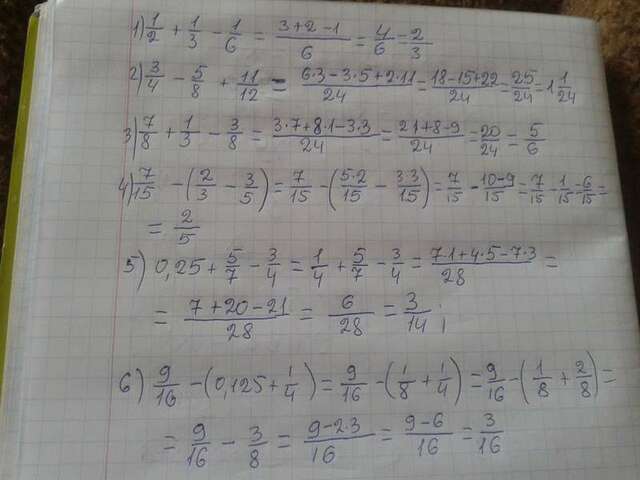 1) 1/2 + 1/3 - 1/6 = (3+2-1)/6 = 4/6 = 2/3
2) 3/4 - 5/8 + 11/12 = (6·3-3·5+2·11)/24 = (18-15+22)/24 = 25/24 = 1 1/24
3) 7/8 + 1/3 - 3/8 = (3·7+8·1-3·3)/24 = (21+8-9)/24 = 20/24 = 5/6
4) 7/15 - (2/3 - 3/5) = 7/15 - (5·2/15 - 3·3/15) = 7/15 - (10-9)/15 = 7/15 - 1/15 = 6/15 =
= 2/5
5) 0,25 + 5/7 - 3/4 = 1/4 + 5/7 - 3/4 = (7·1+4·5-7·3)/28 =
= (7+20-21)/28 = 6/28 = 3/14;
6) 9/16 - (0,125 + 1/4) = 9/16 - (1/8 + 1/4) = 9/16 - (1/8 + 2/8) =
= 9/16 - 3/8 = (9-2·3)/16 = (9-6)/16 = 3/16